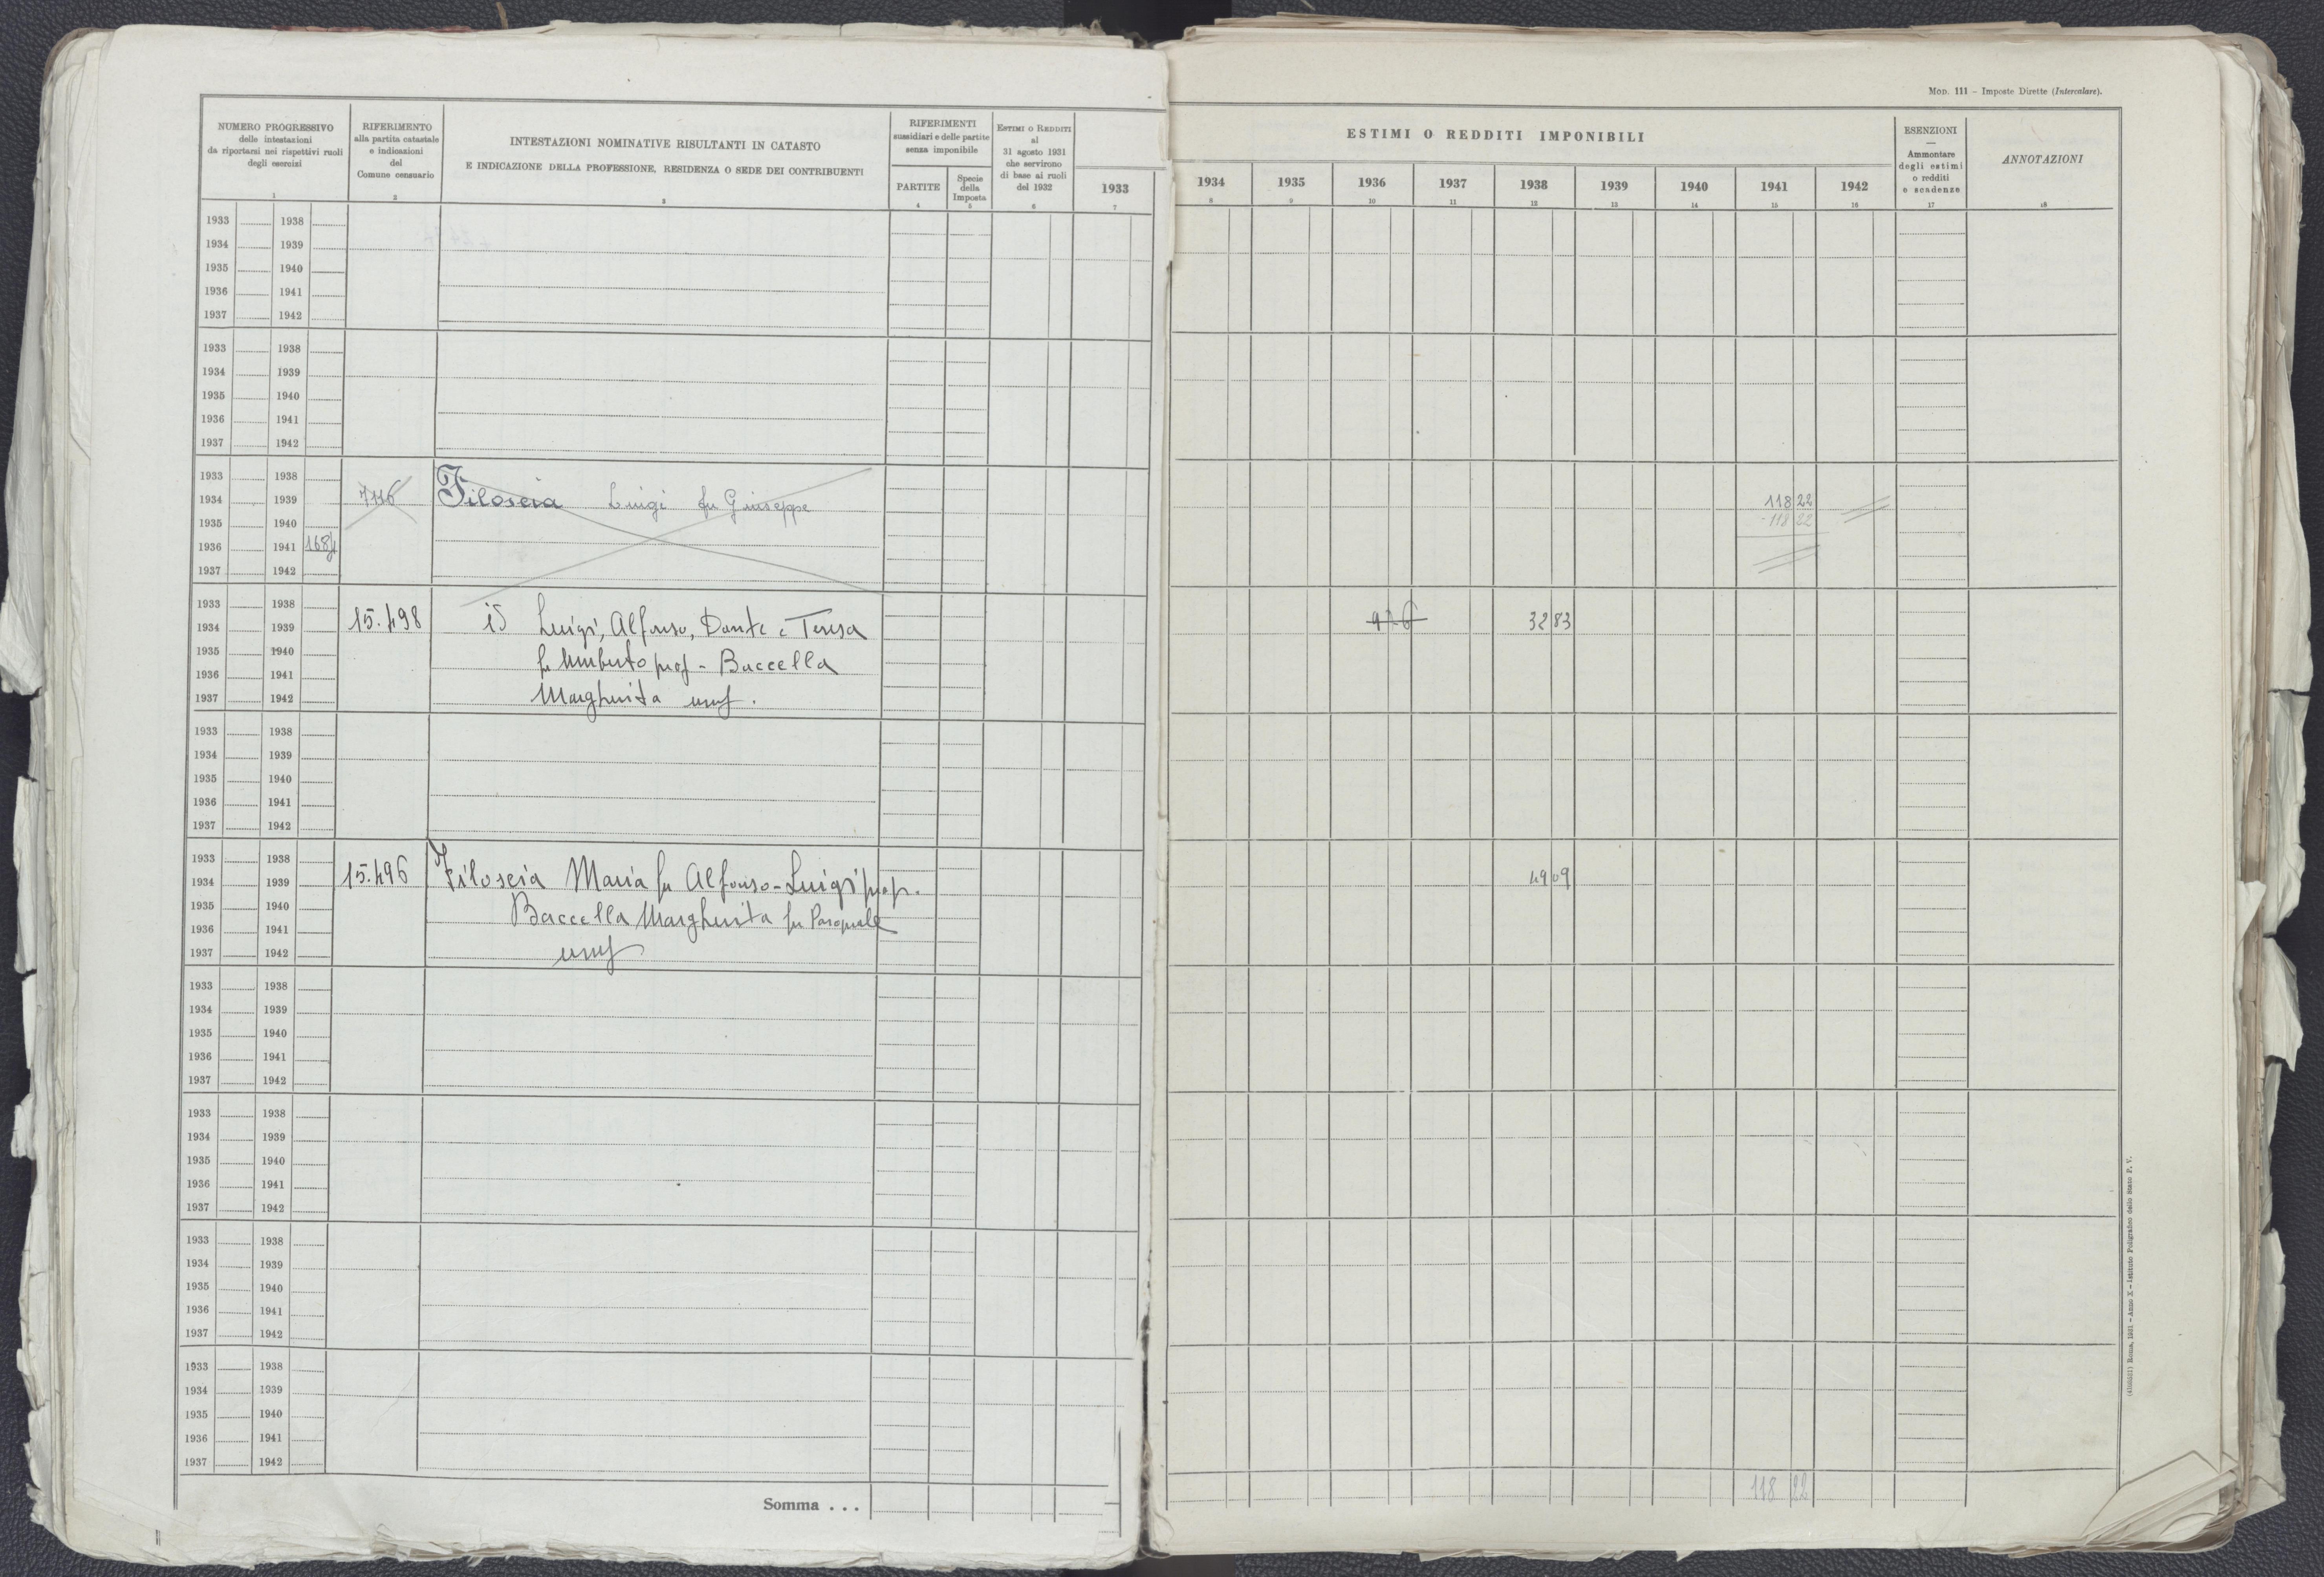 MOD. 111 – Imposte Dirette (Intercalare).
NUMERO PROGRESSIVO
delle intestazioni
da riportarsi nei rispettivi ruoli
degli esercizi
1
RIFERIMENTO
alla partita catastale
e indicazioni
del
Comune censuario
2
INTESTAZIONI NOMINATIVE RISULTANTI IN CATASTO
E INDICAZIONE DELLA PROFESSIONE, RESIDENZA O SEDE DEI CONTRIBUENTI
3
RIFERIMENTI
sussidiari e delle partite
senza imponibile
PARTITE
4
Specie
della
Imposta
5
ESTIMI O REDDITI
al
31 agosto 1931
che servirono
di base ai ruoli
del 1932
6
1933
7
ESTIMI O REDDITI IMPONIBILI
1934 1935 1936 1937 1938 1939 1940 1941 1942
8 9 10 11 12 13 14 15 16
ESENZIONI
—
Ammontare
degli estimi
o redditi
e scadenze
17
ANNOTAZIONI
18
1933 1938
1934 1939
1935 1940
1936 1941
1937 1942
1933 1938
1934 1939
1935 1940
1936 1941
1937 1942
1933 1938
1934 1939 7116 Filoscia Luigi fu Giuseppe 118 22
1935 1940 -118 22
1936 1941 1684
1937 1942
1933 1938
1934 1939 15.498 id Luigi, Alfonso, Dante e Teresa 3283
1935 1940 fu Umberto prop - Baccella
1936 1941
1937 1942 Margherita usuf.
1933 1938
1934 1939
1935 1940
1936 1941
1937 1942
1933 1938
1934 1939 15.496 Filoscia Maria fu Alfonso - Luigi prop. 4909
1935 1940 Baccella Margherita fu Pasquale
1936 1941
1937 1942 usuf
1933 1938
1934 1939
1935 1940
1936 1941
1937 1942
1933 1938
1934 1939
1935 1940
1936 1941
1937 1942
1933 1938
1934 1939
1935 1940
1936 1941
1937 1942
1933 1938
1934 1939
1935 1940
1936 1941
1937 1942
Somma . . . 118 22
Roma, 1931 – Anno X – Istituto Poligrafico dello Stato P. V.